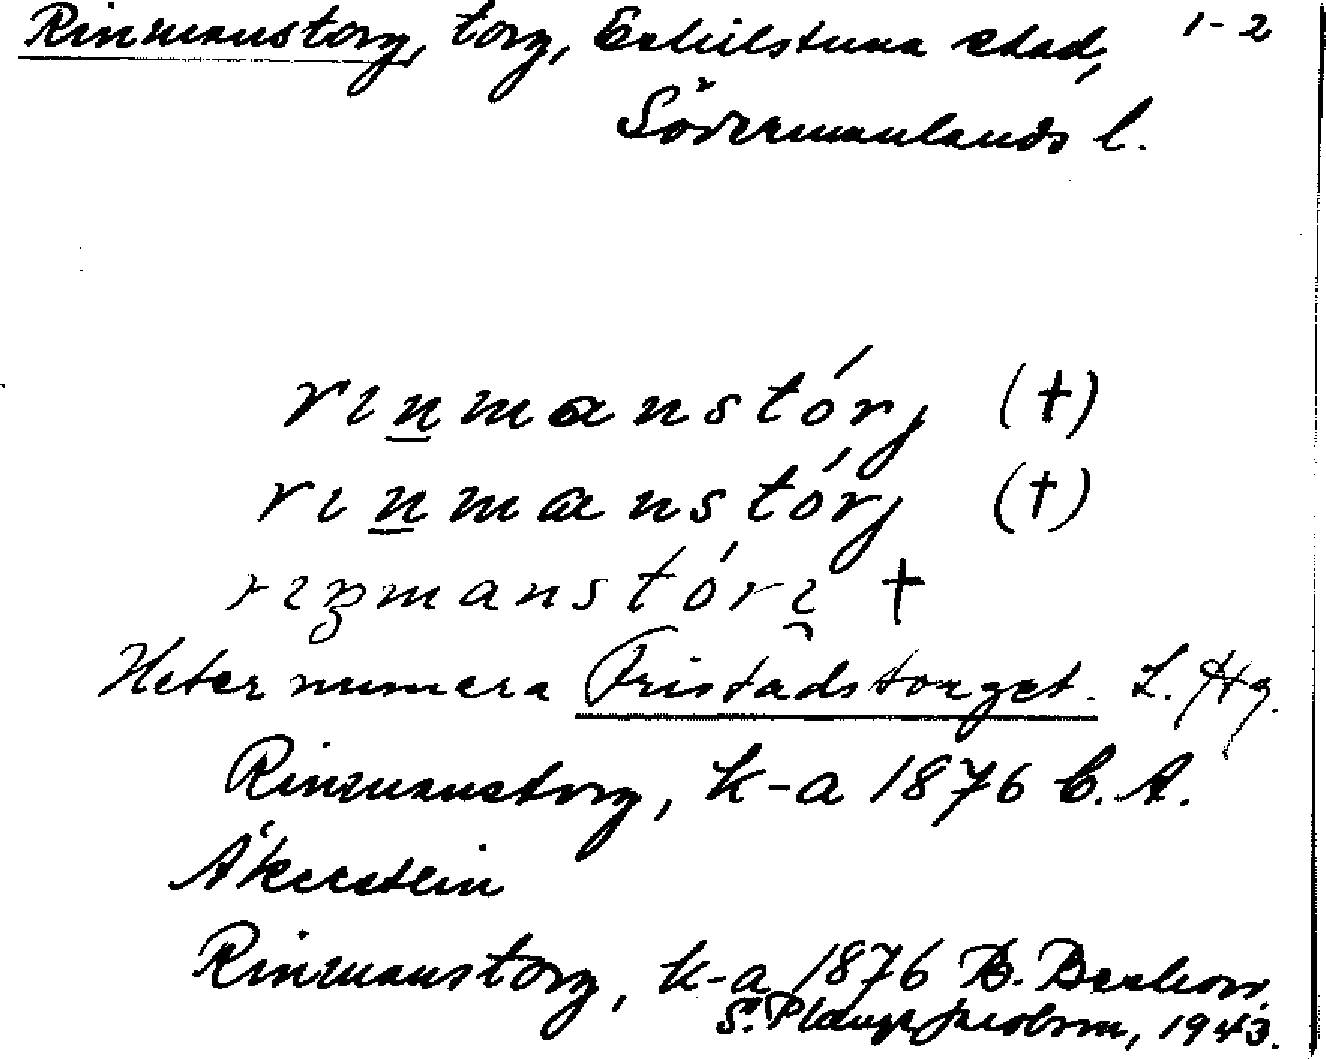 Rinmanstorg, torg, Eskilstuna stad, 1-2
Södermanlands l.
rınmanstórj (†)
rınmanstórj (†)
rınmanstórı †
Heter numera Fristadstorget. L. Hg.
Rinmanstorg, k-a 1876 C. A.
Åkerstein
Rinmanstorg, k-a 1876 B.
S. 1943.